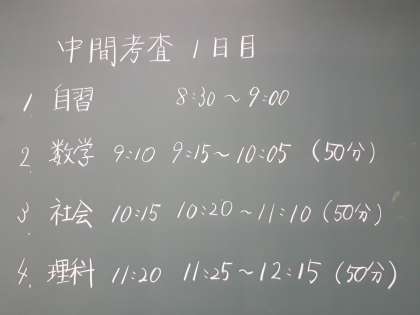 中間考査 1日目
1. 自習 8:30〜9:00
2. 数学 9:10 9:15〜10:05 (50分)
3. 社会 10:15 10:20〜11:10 (50分)
4. 理科 11:20 11:25〜12:15 (50分)